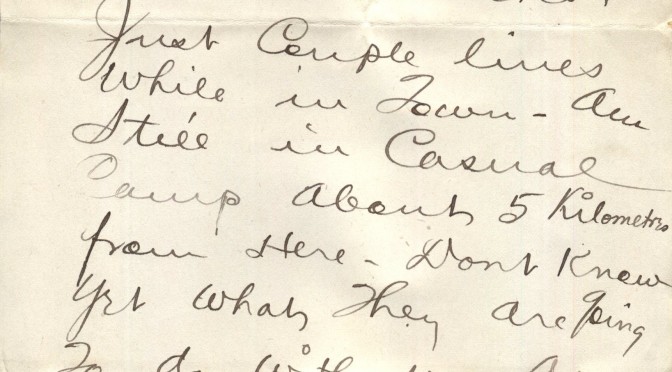 Just Couple lines
While in Town - Am
Still in Casual
Camp About 5 Kilometres
from Here - Dont Know
Yet What They Are going
To do With